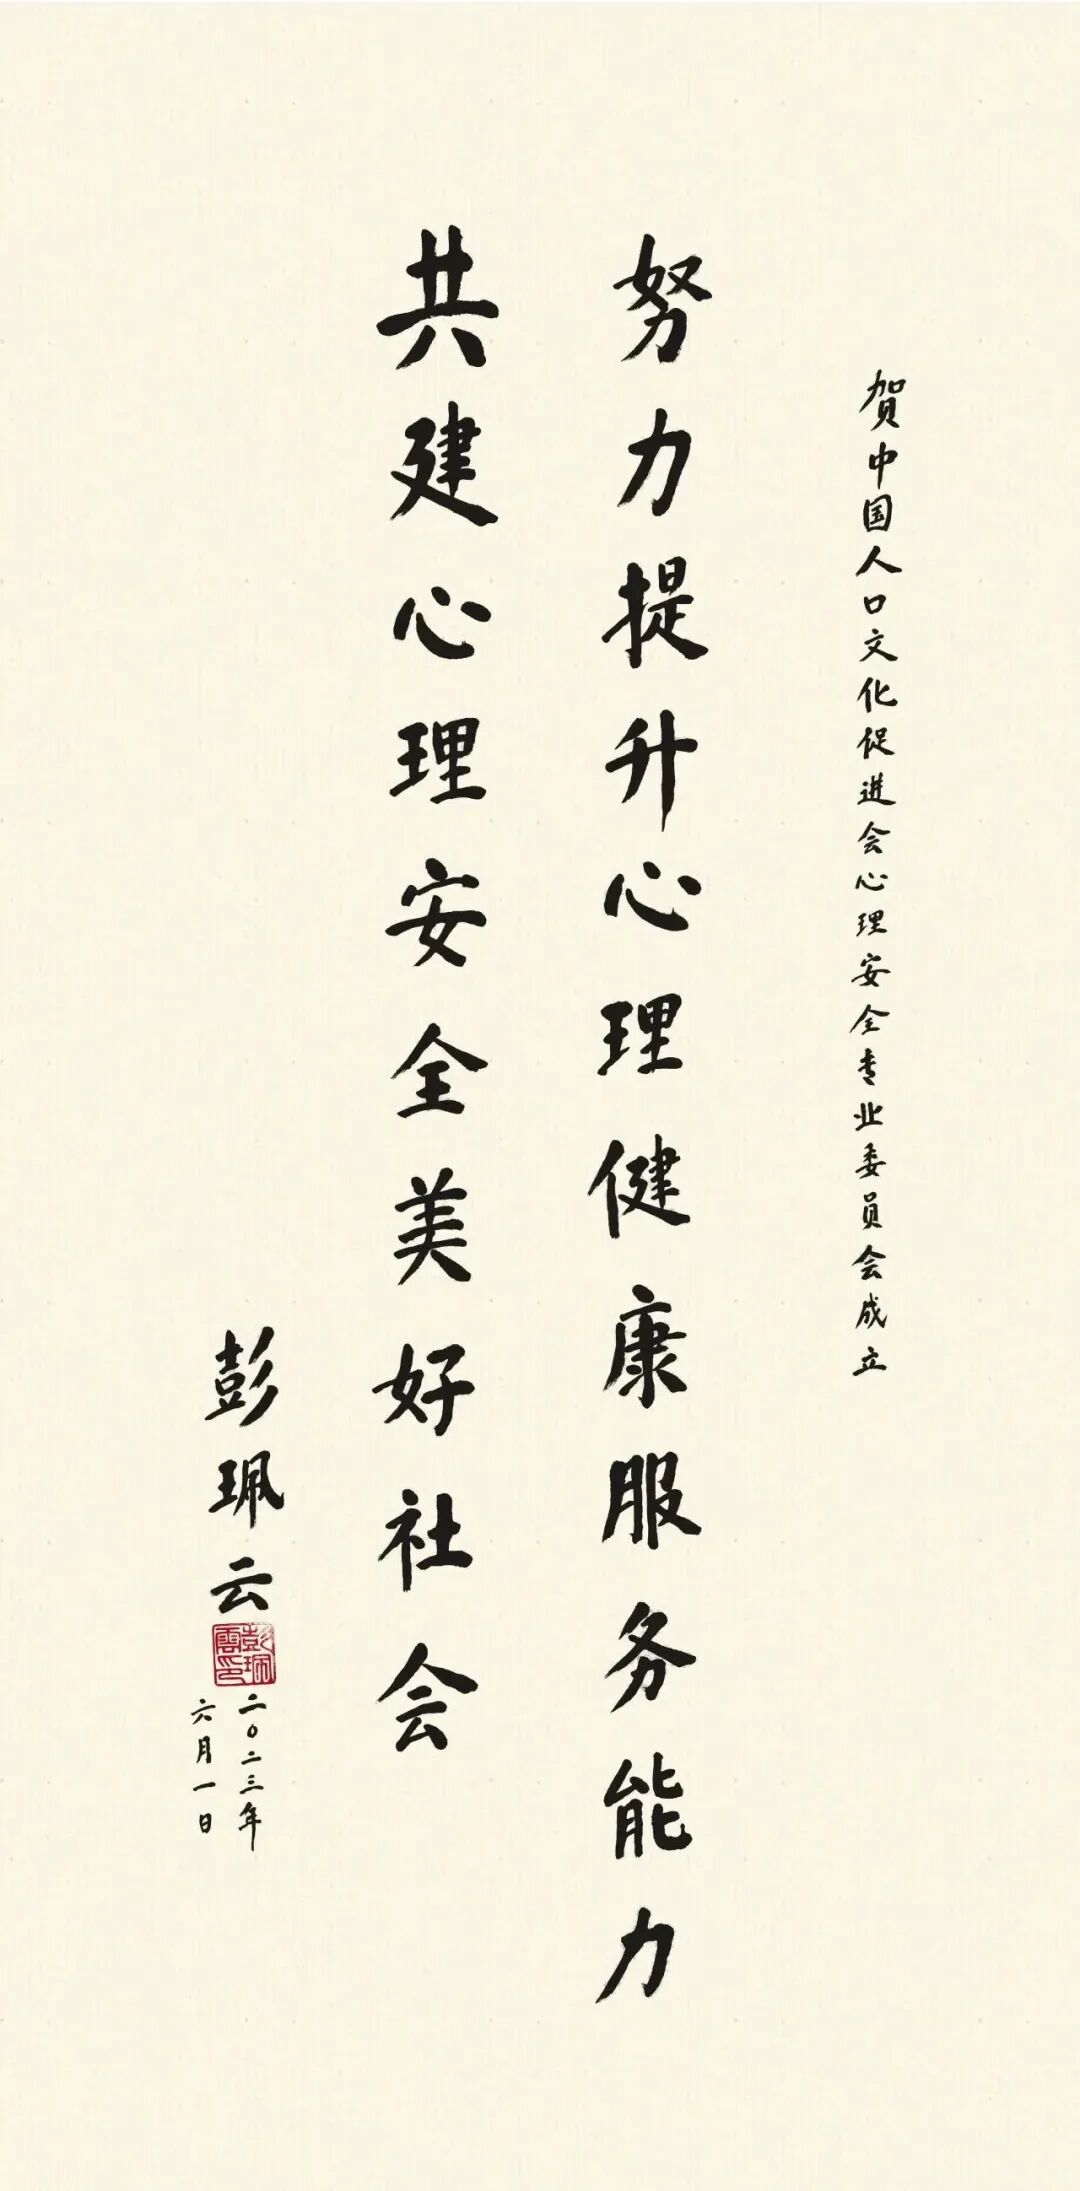 贺中国人口文化促进会心理安全专业委员会成立
努力提升心理健康服务能力
共建心理安全美好社会
彭珮云
彭珮
雲印
二〇二三年
六月一日